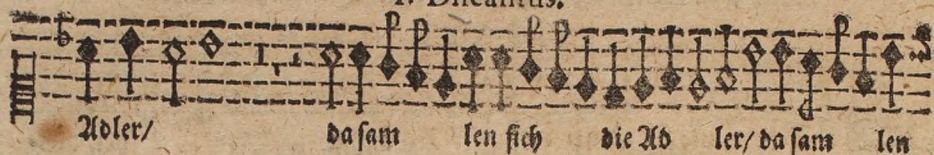 1. Discantus.
Adler/ da ſam len ſich die Ad ler/ da ſam len